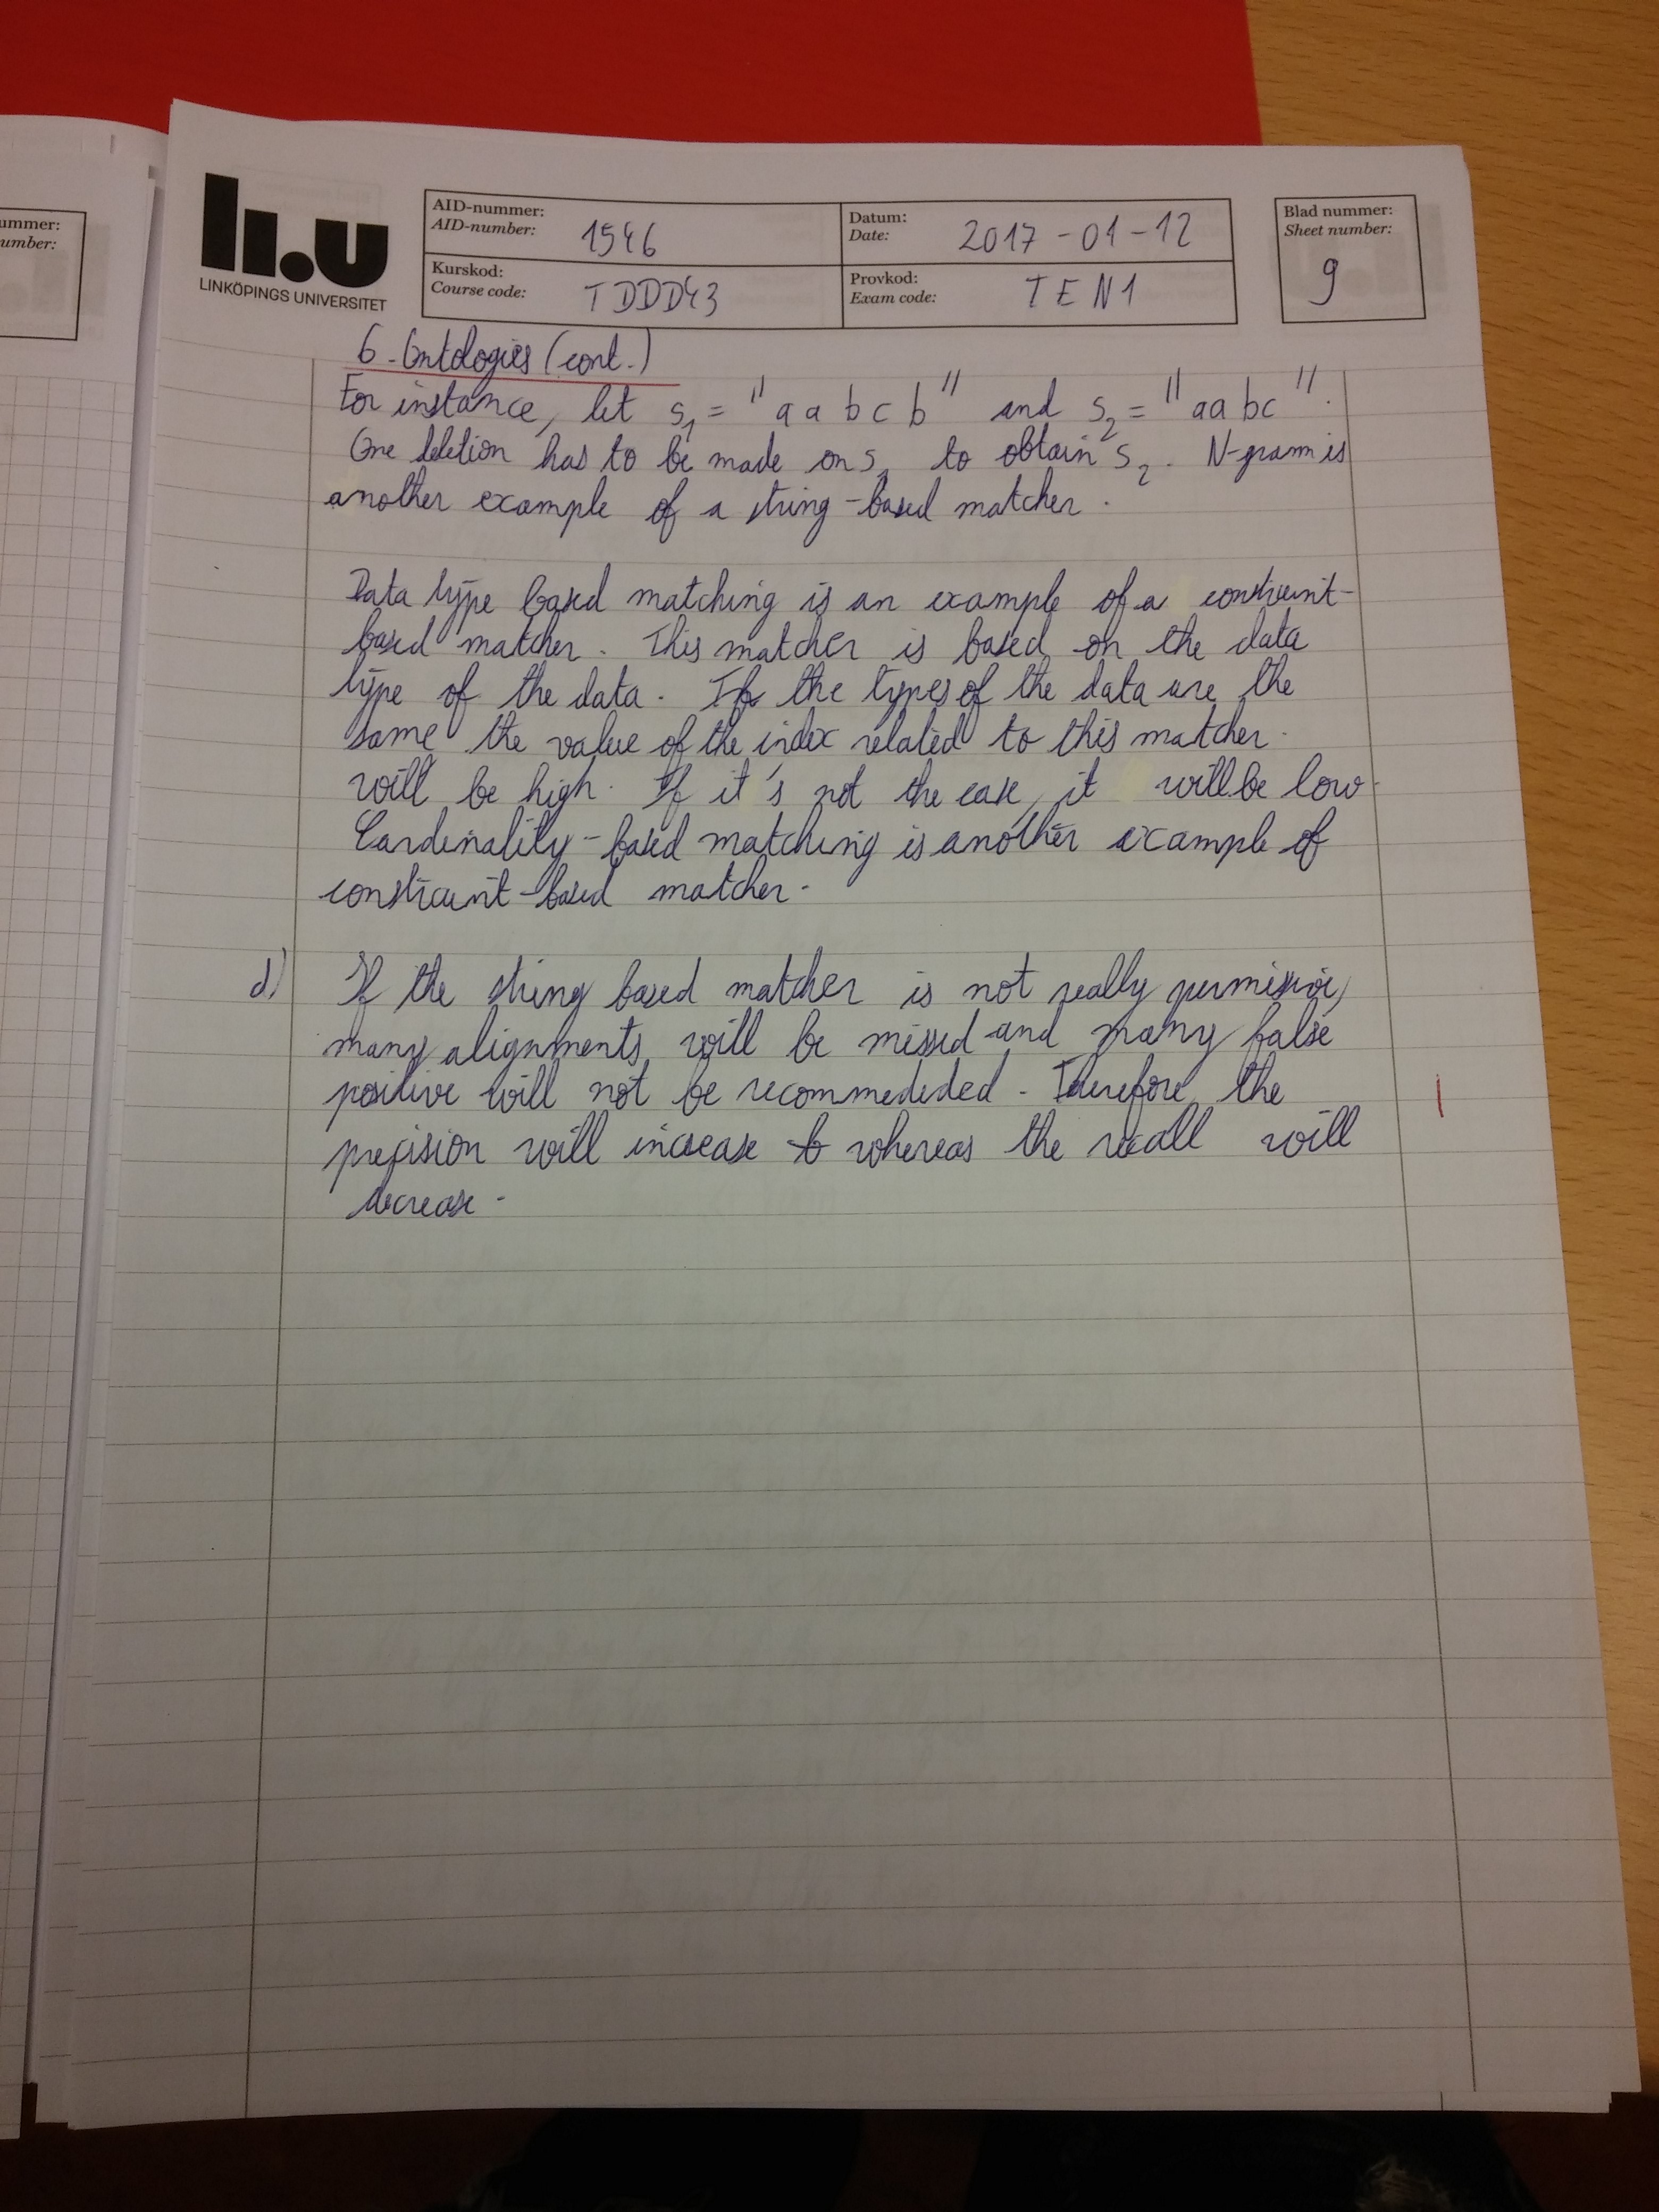 ummer:
umber:
li.u
LINKÖPINGS UNIVERSITET
AID-nummer:
AID-number: 1546
Datum:
Date: 2017-01-12
Blad nummer:
Sheet number:
9
Kurskod:
Course code: TDDD43
Provkod:
Exam code: TEN1
6-Ontologies (cont.)
For instance, let s1 = "aabcb" and s2 = "aabc".
One deletion has to be made on s1 to obtain s2. N-gram is
another example of a string-based matcher.
Data type based matching is an example of a constraint-
based matcher. This matcher is based on the data
type of the data. If the types of the data are the
same the value of the index related to this matcher
will be high. If it's not the case, it will be low.
Cardinality-based matching is another example of
constraint-based matcher.
d) If the string based matcher is not really permissive,
many alignments will be missed and many false
positive will not be recommededed. Therefore, the
precision will increase whereas the recall will
decrease.